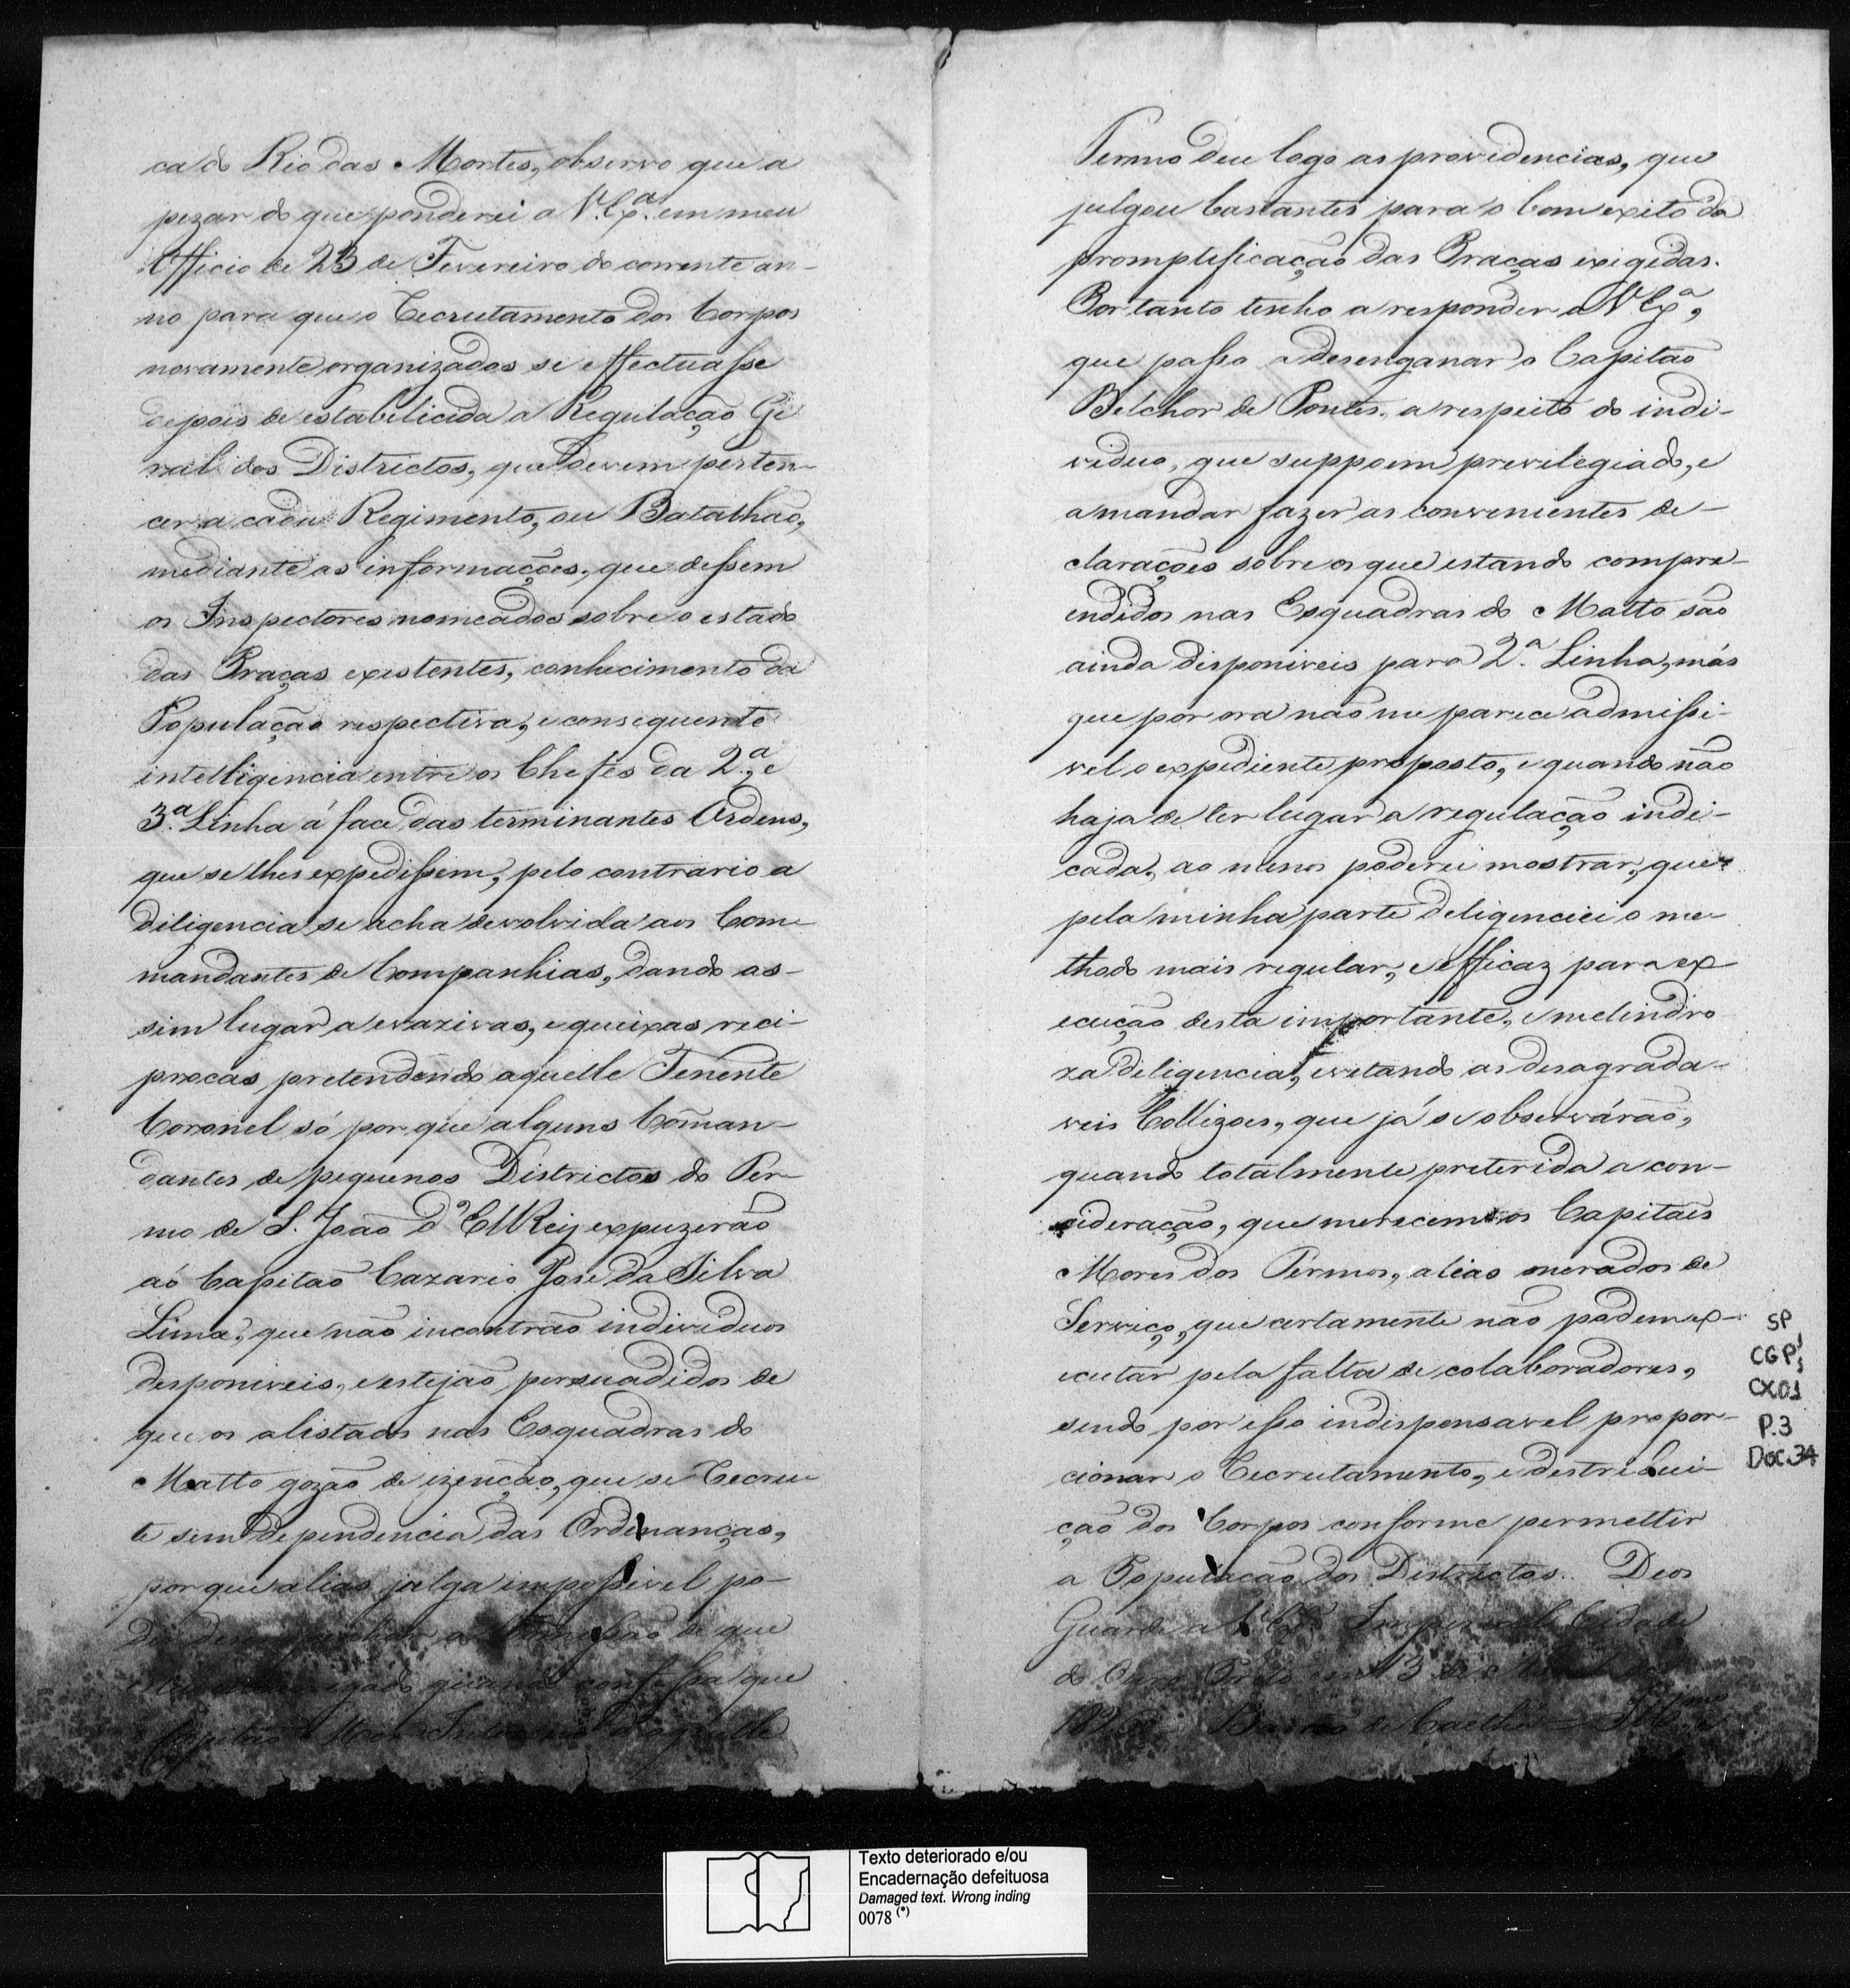 ca do Rio das Mortes, observo que a
pezar do que ponderei a V. Ex.ª em meu
Officio de 23 de Fevereiro do corrente an-
no para que o Recrutamento dos Corpos
novamente organizados se effectuasse
depois de estabelicida a Regulação Ge
ral dos Districtos, que devem perten-
cer a cada Regimento, ou Batalhão,
mediante as informações, que dessem
os Inspectores nomeados sobre o estado
das Praças existentes, conhecimento da
População respectiva, e consequente
intelligencia entre os Chefes da 2.ª, e
3.ª Linha á face das terminantes Ordens,
que se lhes expedissem, pelo contrario a
diligencia se acha devolvida aos Com-
mandantes de Companhias, dando as-
sim lugar a evazivas, e queixas reci-
procas pretendendo aquelle Tenente
Coronel só por que alguns Cõman-
dantes de pequenos Districtos do Ter-
mo de S. João d'ElRey expuzerão
aó Capitão Cazario José da Silva
Lima, que não incontrão individuos
desponiveis, e estejão persuadidos de
que os alistados nas Esquadras do
Matto gozão de izenção, que se Recru-
te sem dependencia das Ordenanças,
por que alias julga impossivel po-
de que
quando confessa que
Capitão Mor
Termo deu logo as providencias, que
julgou bastantes para o bom exito da
promptificação das Praças exigidas.
Portanto tenho a responder a V Exª,
que passo a desenganar o Capitão
Belchor de Pontes, a respeito do indi-
viduo, que suppoem previlegiado, e
a mandar fazer as convenientes de-
clarações sobre os que estando compre-
endidos nas Esquadras do Matto são
ainda disponiveis para 2.ª Linha, más
que por ora não me parece admissi-
vel o expediente proposto, e quando não
haja de ter lugar a regulação indi-
cada, ao menos poderei mostrar, que
pela minha parte deligenciei o me-
thodo mais regular, e efficaz para ex
ecução desta importante, e melindro
za deligencia, evitando as desagrada-
veis Collizoes, que já se observárão,
quando totalmente preterida a con-
sideração, que merecem os Capitães
Mores dos Termos, alias onerados de
Serviço, que certamente não podem ex-
ecutar pela falta de colaboradores,
sendo por isso indispensavel propor-
cionar o Recrutamento, e destribui-
ção dos Corpos conforme permettir
a População dos Districtos. Deos
Guarde a V. Exª Imperial Cidade
do Ouro Preto em 3 de
Barão de Caethé
SP
CGP1
CX01
P.3
Doc.34
Texto deteriorado e/ou
Encadernação defeituosa
Damaged text. Wrong inding
0078 (*)